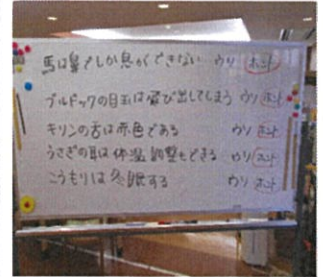 馬は鼻でしか息ができない ウソ ホント
ブルドックの目玉は飛び出してしまう ウソ ホント
キリンの舌は赤色である ウソ ホント
うさぎの耳は体温調整もできる ウソ ホント
こうもりは冬眠する ウソ ホント